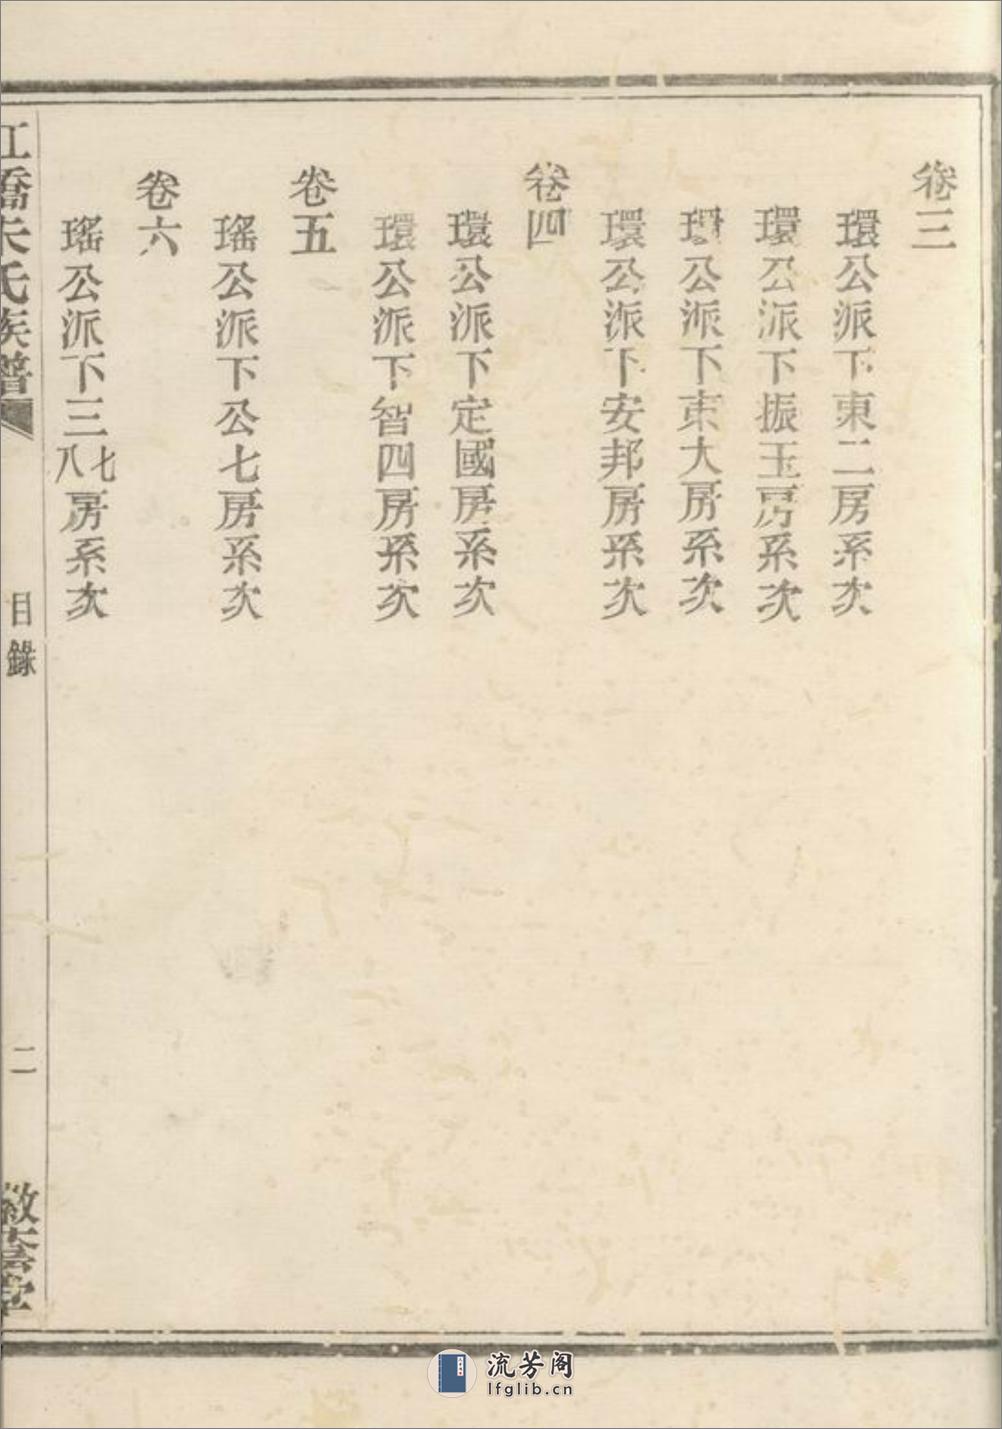 卷三
環公派下東二房系次
環公派下振玉房系次
環公派下東大房系次
環公派下安邦房系次
卷四
環公派下定國房系次
環公派下智四房系次
卷五
瑤公派下公七房系次
卷六
瑤公派下三七八房系次
氏族譜
目錄
二
堂
流芳阁
lfglib.cn